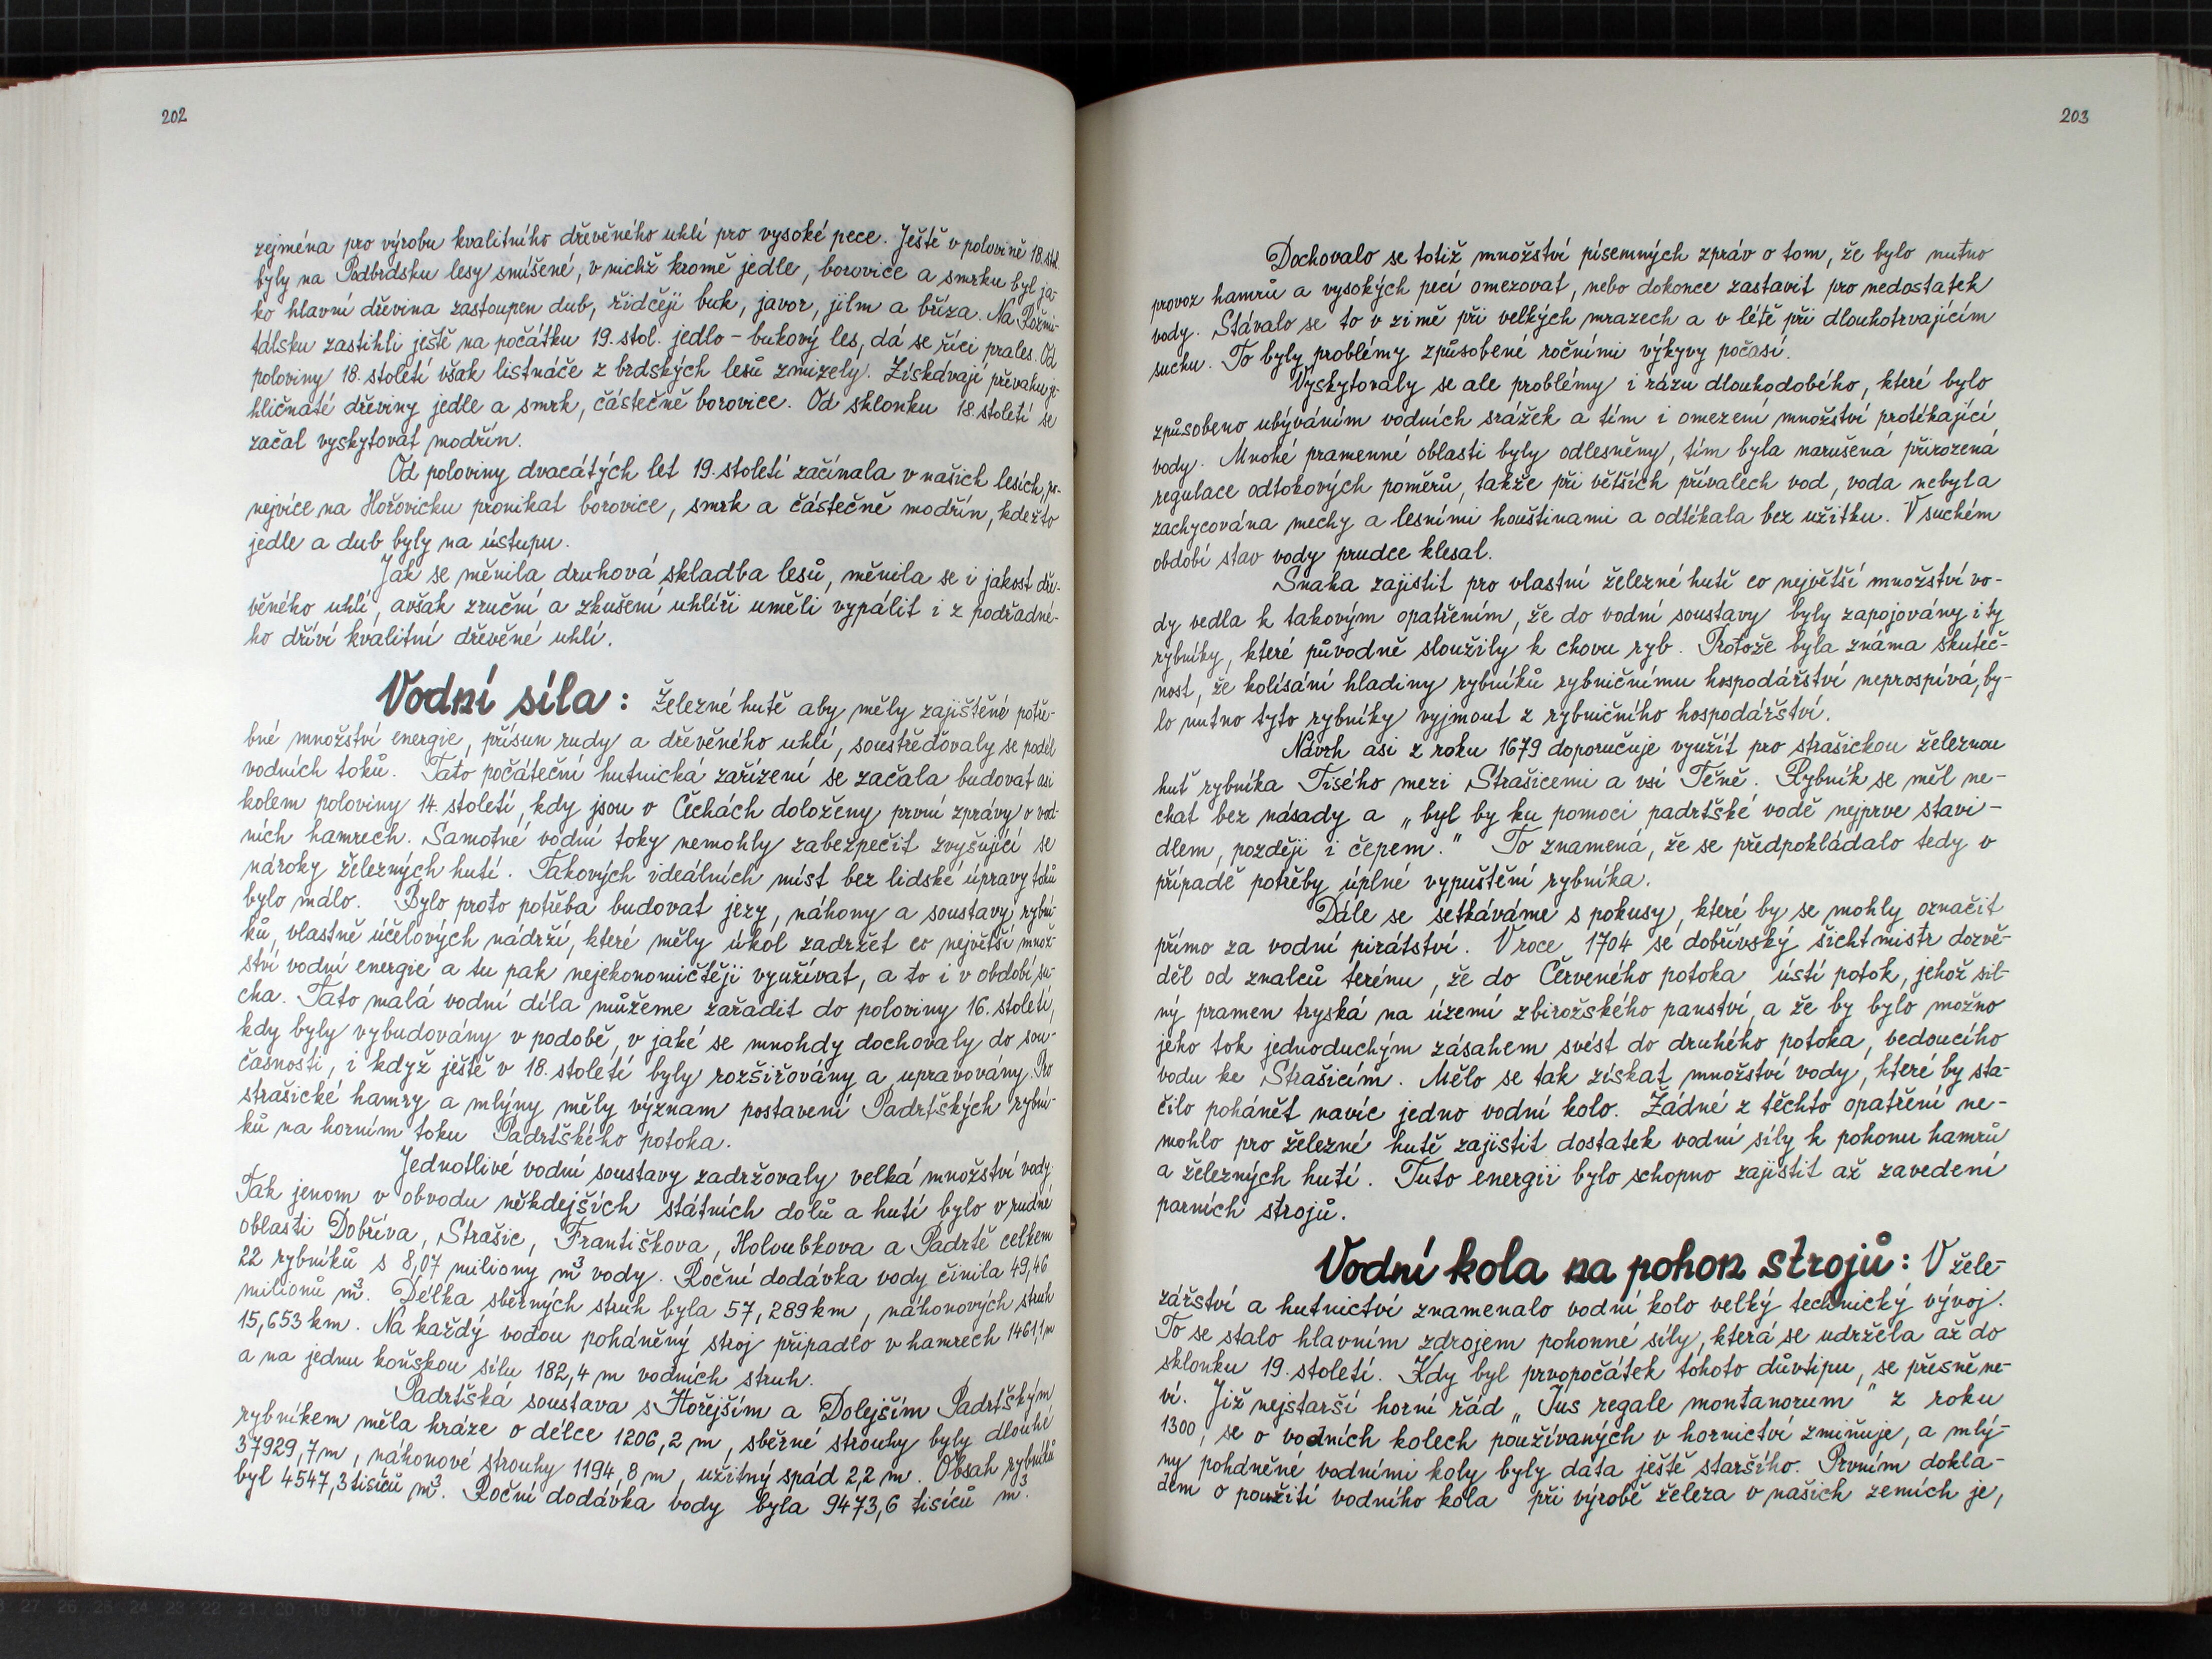 202
zejména pro výrobu kvalitního dřevěného uhlí pro vysoké pece. Ještě v polovině 18. stol.
byly na Podbrdsku lesy smíšené, v nichž kromě jedle, borovice a smrku byl ja-
ko hlavní dřevina zastoupen dub, řidčeji buk, javor, jilm a bříza. Na Rožmi-
tálsku zastihli ještě na počátku 19. stol. jedlo - bukový les, dá se říci prales. Od
poloviny 18. století však listnáče z brdských lesů zmizely. Získávají převahu je-
hličnaté dřeviny jedle a smrk, částečně borovice. Od sklonku 18. století se
začal vyskytovat modřín.
Od poloviny dvacátých let 19. století začínala v našich lesích,
nejvíce na Hořovicku pronikat borovice, smrk a částečně modřín, kdežto
jedle a dub byly na ústupu.
Jak se měnila druhová skladba lesů, měnila se i jakost dře-
věného uhlí, avšak zruční a zkušení uhlíři uměli vypálit i z podřadné-
ho dříví kvalitní dřevěné uhlí.
Vodní síla: Železné hutě aby měly zajištěné potře-
bné množství energie, přísun rudy a dřevěného uhlí, soustřeďovaly se podél
vodních toků. Tato počáteční hutnická zařízení se začala budovat asi
kolem poloviny 14. století, kdy jsou v Čechách doloženy první zprávy o vod-
ních hamrech. Samotné vodní toky nemohly zabezpečit zvyšující se
nároky železných hutí. Takových ideálních míst bez lidské úpravy toků
bylo málo. Bylo proto potřeba budovat jezy, náhony a soustavy rybní-
ků, vlastně účelových nádrží, které měly úkol zadržet co největší množ-
ství vodní energie a tu pak nejekonomičtěji využívat, a to i v období su-
cha. Tato malá vodní díla můžeme zařadit do poloviny 16. století,
kdy byly vybudovány v podobě, v jaké se mnohdy dochovaly do sou-
časnosti, i když ještě v 18. století byly rozšiřovány a upravovány. Pro
strašické hamry a mlýny měly význam postavení Padrtšských rybní-
ků na horním toku Padrtšského potoka.
Jednotlivé vodní soustavy zadržovaly velká množství vody.
Tak jenom v obvodu někdejších státních dolů a hutí bylo v rudné
oblasti Dobříva, Strašic, Františkova, Holoubkova a Padrtě celkem
22 rybníků s 8,07 miliony m³ vody. Roční dodávka vody činila 49,46
milionů m³. Délka sběrných struh byla 57,289 km, náhonových struh
15,653 km. Na každý vodou poháněný stroj připadlo v hamrech 1461,1 m
a na jednu koňskou sílu 182,4 m vodních struh.
Padrtšká soustava s Hořejším a Dolejším Padrtšským
rybníkem měla hráze o délce 1206,2 m, sběrné strouhy byly dlouhé
37929,7 m, náhonové strouhy 1194,8 m, užitný spád 2,2 m. Obsah rybníků
byl 4547,3 tisíců m³. Roční dodávka vody byla 9473,6 tisíců m³.
203
Dochovalo se totiž množství písemných zpráv o tom, že bylo nutno
provoz hamrů a vysokých pecí omezovat, nebo dokonce zastavit pro nedostatek
vody. Stávalo se to v zimě při velkých mrazech a v létě při dlouhotrvajícím
suchu. To byly problémy způsobené ročními výkyvy počasí.
Vyskytovaly se ale problémy i rázu dlouhodobého, které bylo
způsobeno ubýváním vodních srážek a tím i omezení množství protékající
vody. Mnohé pramenné oblasti byly odlesněny, tím byla narušená přirozená
regulace odtokových poměrů, takže při větších přívalech vod, voda nebyla
zachycována mechy a lesními houštinami a odtékala bez užitku. V suchém
období stav vody prudce klesal.
Snaha zajistit pro vlastní železné hutě co největší množství vo-
dy vedla k takovým opatřením, že do vodní soustavy byly zapojovány i ty
rybníky, které původně sloužily k chovu ryb. Protože byla známa skuteč-
nost, že kolísání hladiny rybníků rybničnímu hospodářství neprospívá, by-
lo nutno tyto rybníky vyjmout z rybničního hospodářství.
Návrh asi z roku 1679 doporučuje využít pro strašickou železnou
huť rybníka Tisého mezi Strašicemi a vsí Těně. Rybník se měl ne-
chat bez násady a „byl by ku pomoci padrtšké vodě nejprve stavi-
dlem, později i čepem." To znamená, že se předpokládalo tedy v
případě potřeby úplné vypuštění rybníka.
Dále se setkáváme s pokusy, které by se mohly označit
přímo za vodní pirátství. V roce 1704 se dobřívský šichtmistr dozvě-
děl od znalců terénu, že do Červeného potoka ústí potok, jehož sil-
ný pramen tryská na území zbirožského panství, a že by bylo možno
jeho tok jednoduchým zásahem svést do druhého potoka, vedoucího
vodu ke Strašicím. Mělo se tak získat množství vody, které by sta-
čilo pohánět navíc jedno vodní kolo. Žádné z těchto opatření ne-
mohlo pro železné hutě zajistit dostatek vodní síly k pohonu hamrů
a železných hutí. Tuto energii bylo schopno zajistit až zavedení
parních strojů.
Vodní kola na pohon strojů: V žele-
zářství a hutnictví znamenalo vodní kolo velký technický vývoj.
To se stalo hlavním zdrojem pohonné síly, která se udržela až do
sklonku 19. století. Kdy byl prvopočátek tohoto důvtipu, se přesně ne-
ví. Již nejstarší horní řád „Jus regale montanorum" z roku
1300, se o vodních kolech používaných v hornictví zmiňuje, a mlý-
ny poháněné vodními koly byly data ještě staršího. Prvním dokla-
dem o použití vodního kola při výrobě železa v našich zemích je,